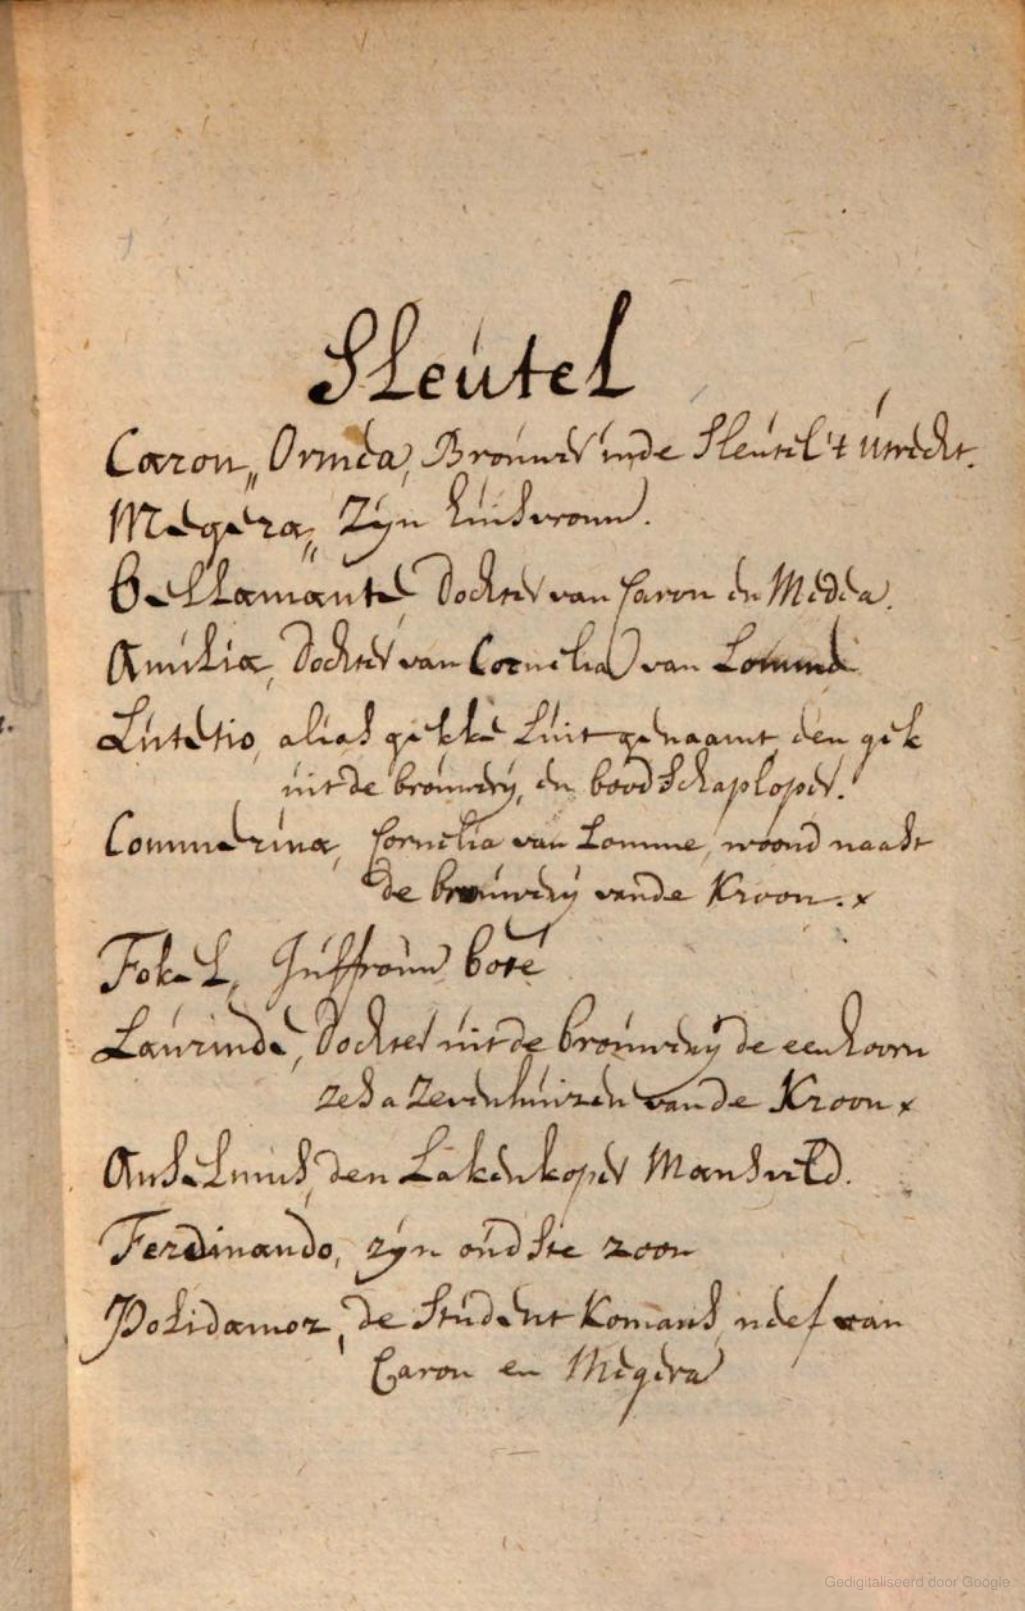 Sleutel
Caron,, Ormea, Brouwer inde Sleutel 't utrecht.
Megera,, Zyn huisvrouw.
Bellamante, dochter van Caron en Medea.
Amilia, dochter van Cornelia van Lomme
Lutetio, alias gekke Luit genaamt, den gek
uit de brouwery, en boodschaploper.
Commerina, Cornelia van Lomme, woond naast
de brouwery vande Kroon. x
Fokel, Juffrouw boré
Laurinde, Dochter uit de brouwery de eenhoorn
zes a Zevenhuizen vande Kroon x
Anselmus, den Lakenkoper Mansveld.
Ferdinando, zyn oudste zoon
Polidamor, de Student Komans, neef van
Caron en Megera
Gedigitaliseerd door Google